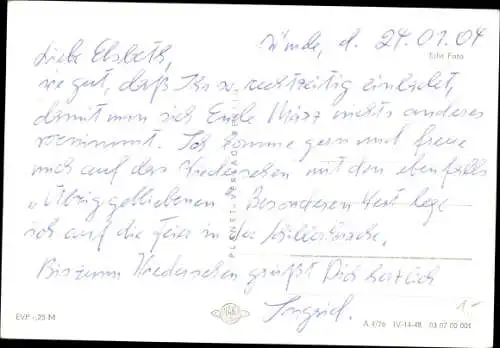 Bünde, d. 24.01.04
Echt Foto
Liebe Elsbeth,
wie gut, daß Ihr so rechtzeitig einladet,
damit man sich Ende März nichts anderes
vornimmt. Ich komme gern und freue
mich auf das Wiedersehen mit den ebenfalls
"Übriggebliebenen". Besonderen Wert lege
ich auf die Feier in der
Bis zum Wiedersehen grüßt Dich herzlich
Ingrid.
1,-
PLANET-VERLAG BERLIN
EVP -,25 M
A 1/76 IV-14-48 03 07 00 001